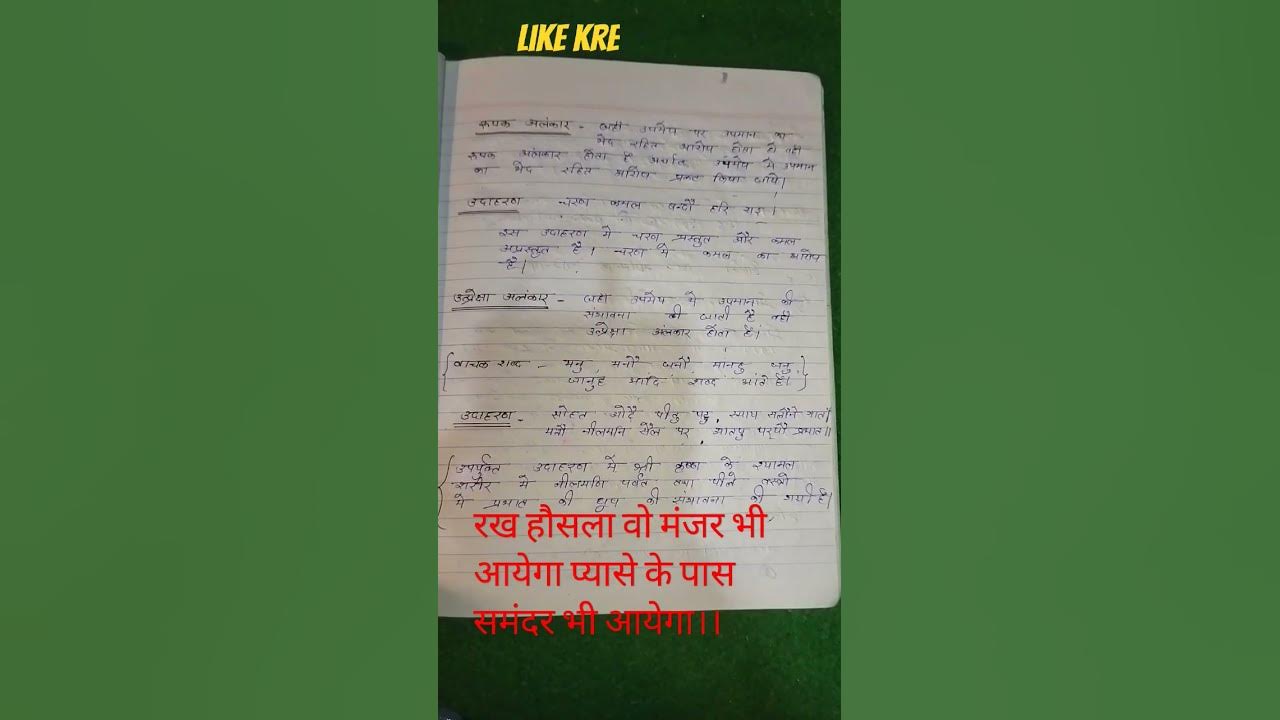 LIKE KRE
रूपक अलंकार - जहाँ उपमेय पर उपमान का
भेद रहित आरोप होता है वहाँ
रूपक अलंकार होता है अर्थात उपमेय में उपमान
का भेद रहित आरोप प्रकट किया जाये।
उदाहरण चरण कमल बन्दौ हरि राइ।
इस उदाहरण में चरण प्रस्तुत और कमल
अप्रस्तुत है। चरण में कमल का आरोप
है।
उत्प्रेक्षा अलंकार - जहाँ उपमेय में उपमान की
संभावना की जाती है वहाँ
उत्प्रेक्षा अलंकार होता है।
{वाचक शब्द - मनु, मनौ जनौ, मानहु जनु,
जानुह आदि शब्द आते हैं।}
उदाहरण - सोहत ओढै पीतु पटु, स्याम सलौने गातौ
मनौ नीलमनि सैल पर, आतपु पर्यौ प्रभात॥
उपर्युक्त उदाहरण में श्री कृष्ण के श्यामल
शरीर में नीलमणि पर्वत तथा पीले वस्त्रों
में प्रभात की धूप की संभावना की गयी है।
रख हौसला वो मंजर भी
आयेगा प्यासे के पास
समंदर भी आयेगा।।